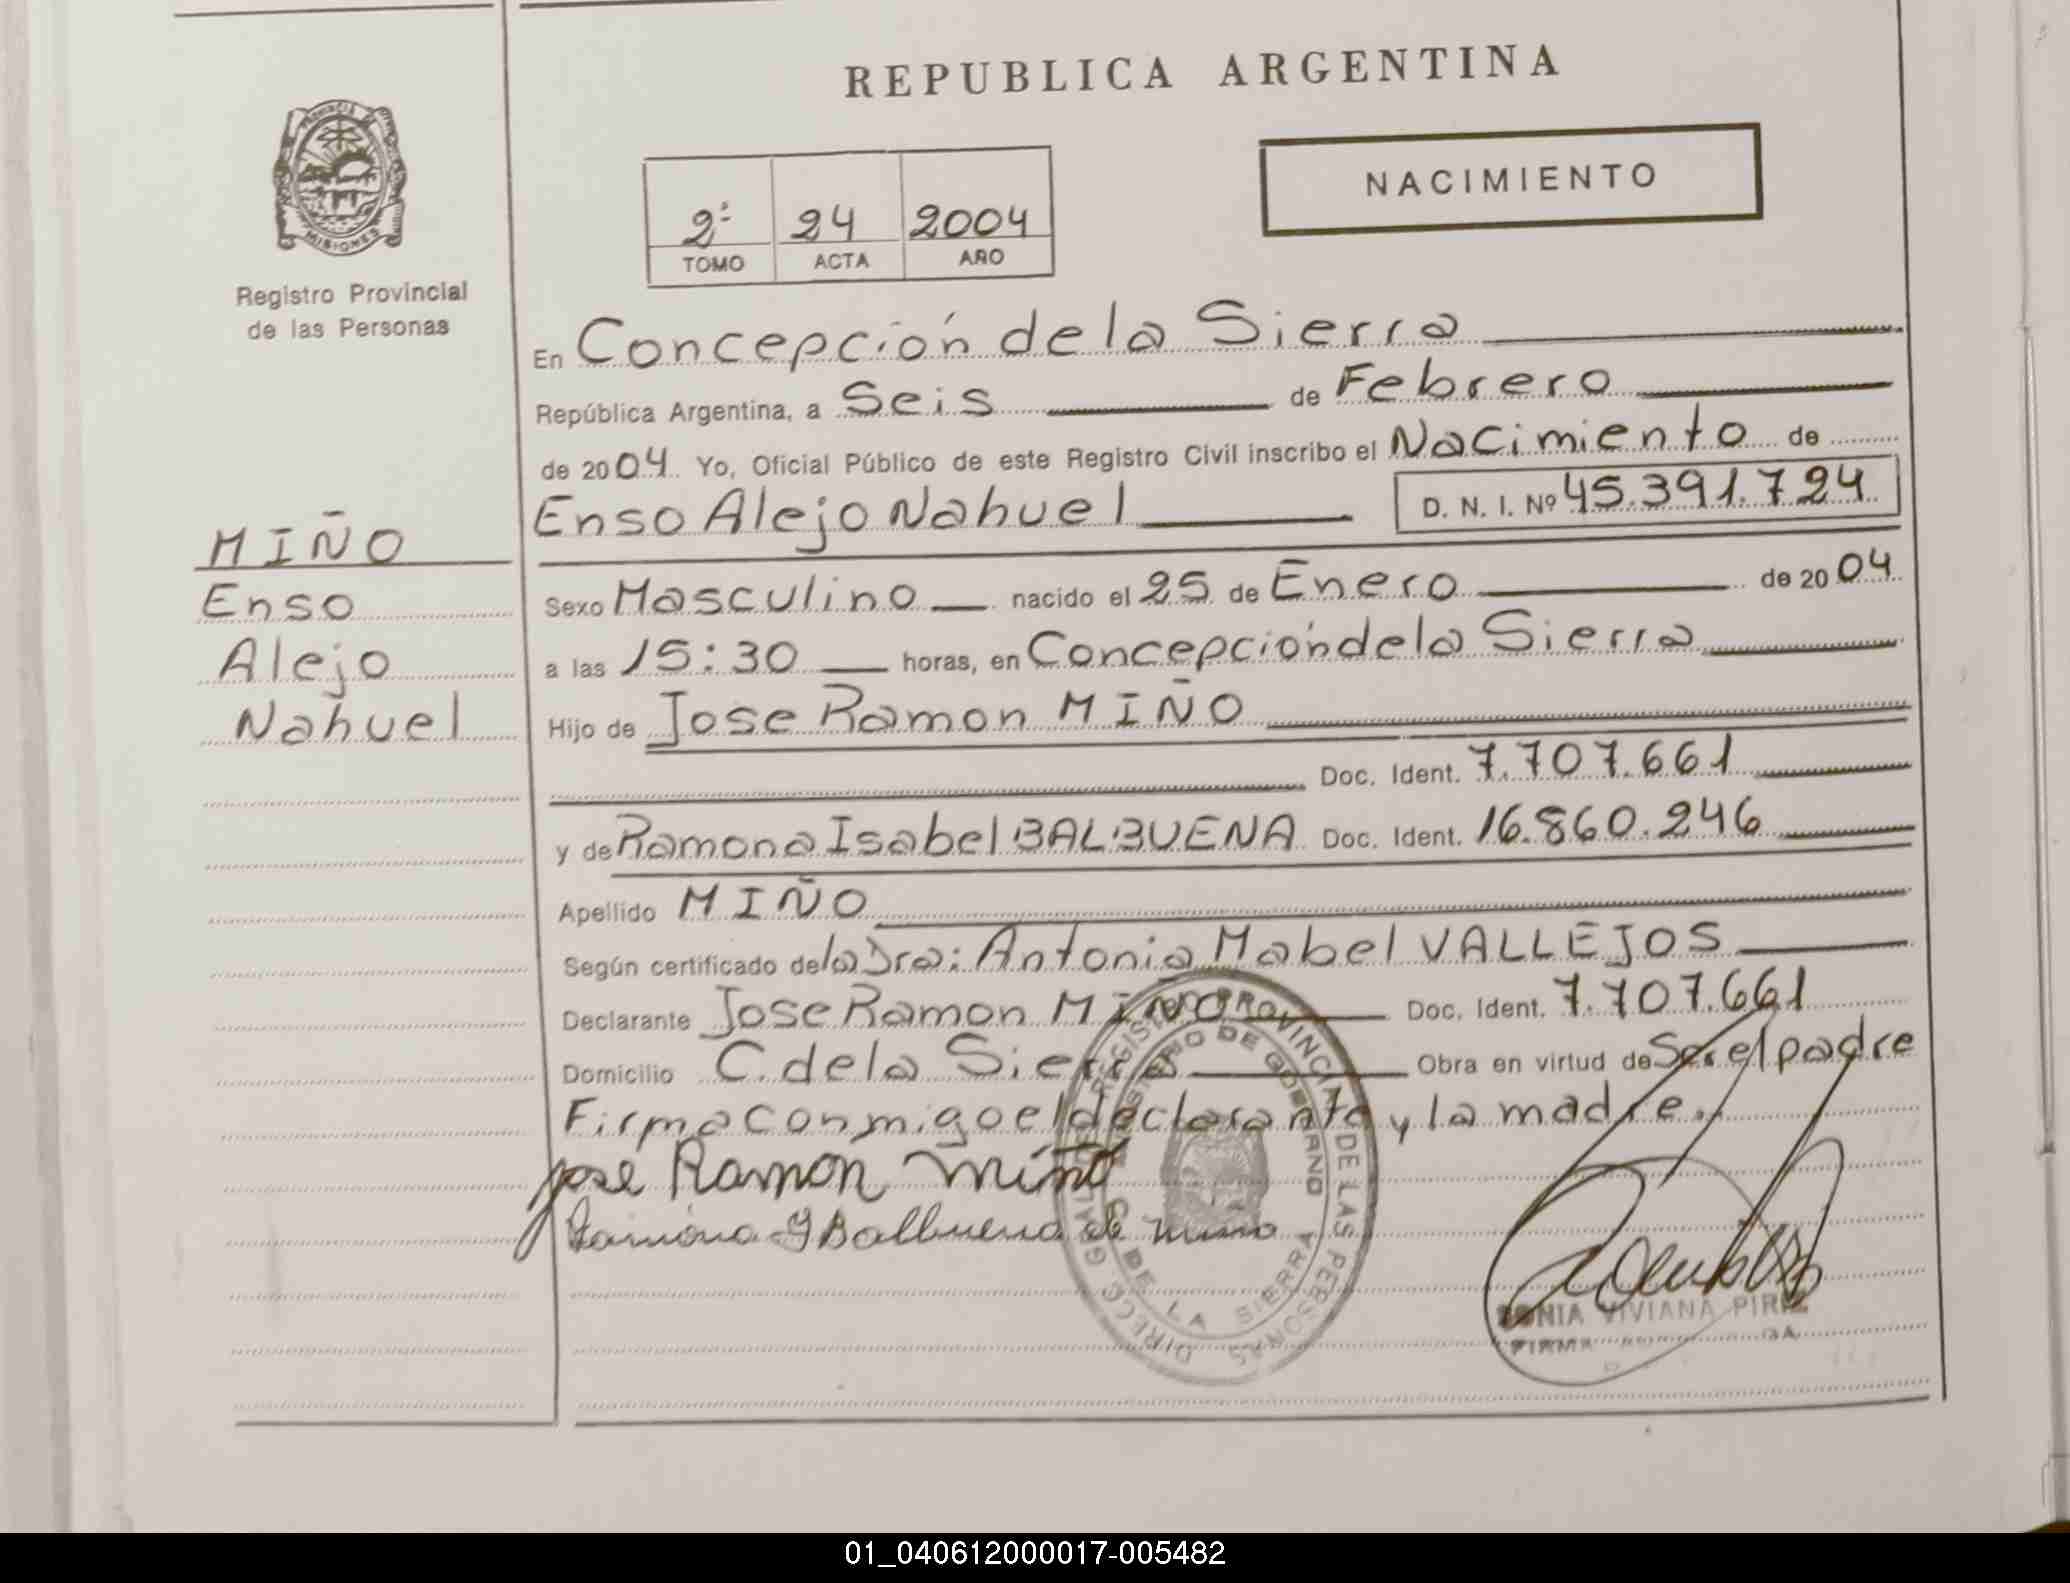 REPUBLICA ARGENTINA
NACIMIENTO
PROVINCIA DE MISIONES
Registro Provincial
de las Personas
2º 24 2004
TOMO ACTA AÑO
En Concepción de la Sierra
República Argentina, a Seis de Febrero
de 2004 Yo, Oficial Público de este Registro Civil inscribo el Nacimiento de
Enso Alejo Nahuel D. N. I. Nº 45.391.724
MIÑO
Enso
Alejo
Nahuel
Sexo Masculino nacido el 25 de Enero de 2004
a las 15:30 horas, en Concepción de la Sierra
Hijo de Jose Ramon MIÑO
Doc. Ident. 7.707.661
y de Ramona Isabel BALBUENA Doc. Ident. 16.860.246
Apellido MIÑO
Según certificado de la Dra: Antonia Mabel VALLEJOS
Declarante Jose Ramon MIÑO Doc. Ident. 7.707.661
Domicilio C. de la Sierra Obra en virtud de Ser el padre
Firma conmigo el declarante y la madre.
jose Ramon miño
Ramona Y Balbuena de Miño
REGISTRO PROVINCIAL DE LAS PERSONAS
MINISTERIO DE GOBIERNO
DE LA SIERRA
SONIA VIVIANA PIREZ
FIRMA
01_040612000017-005482